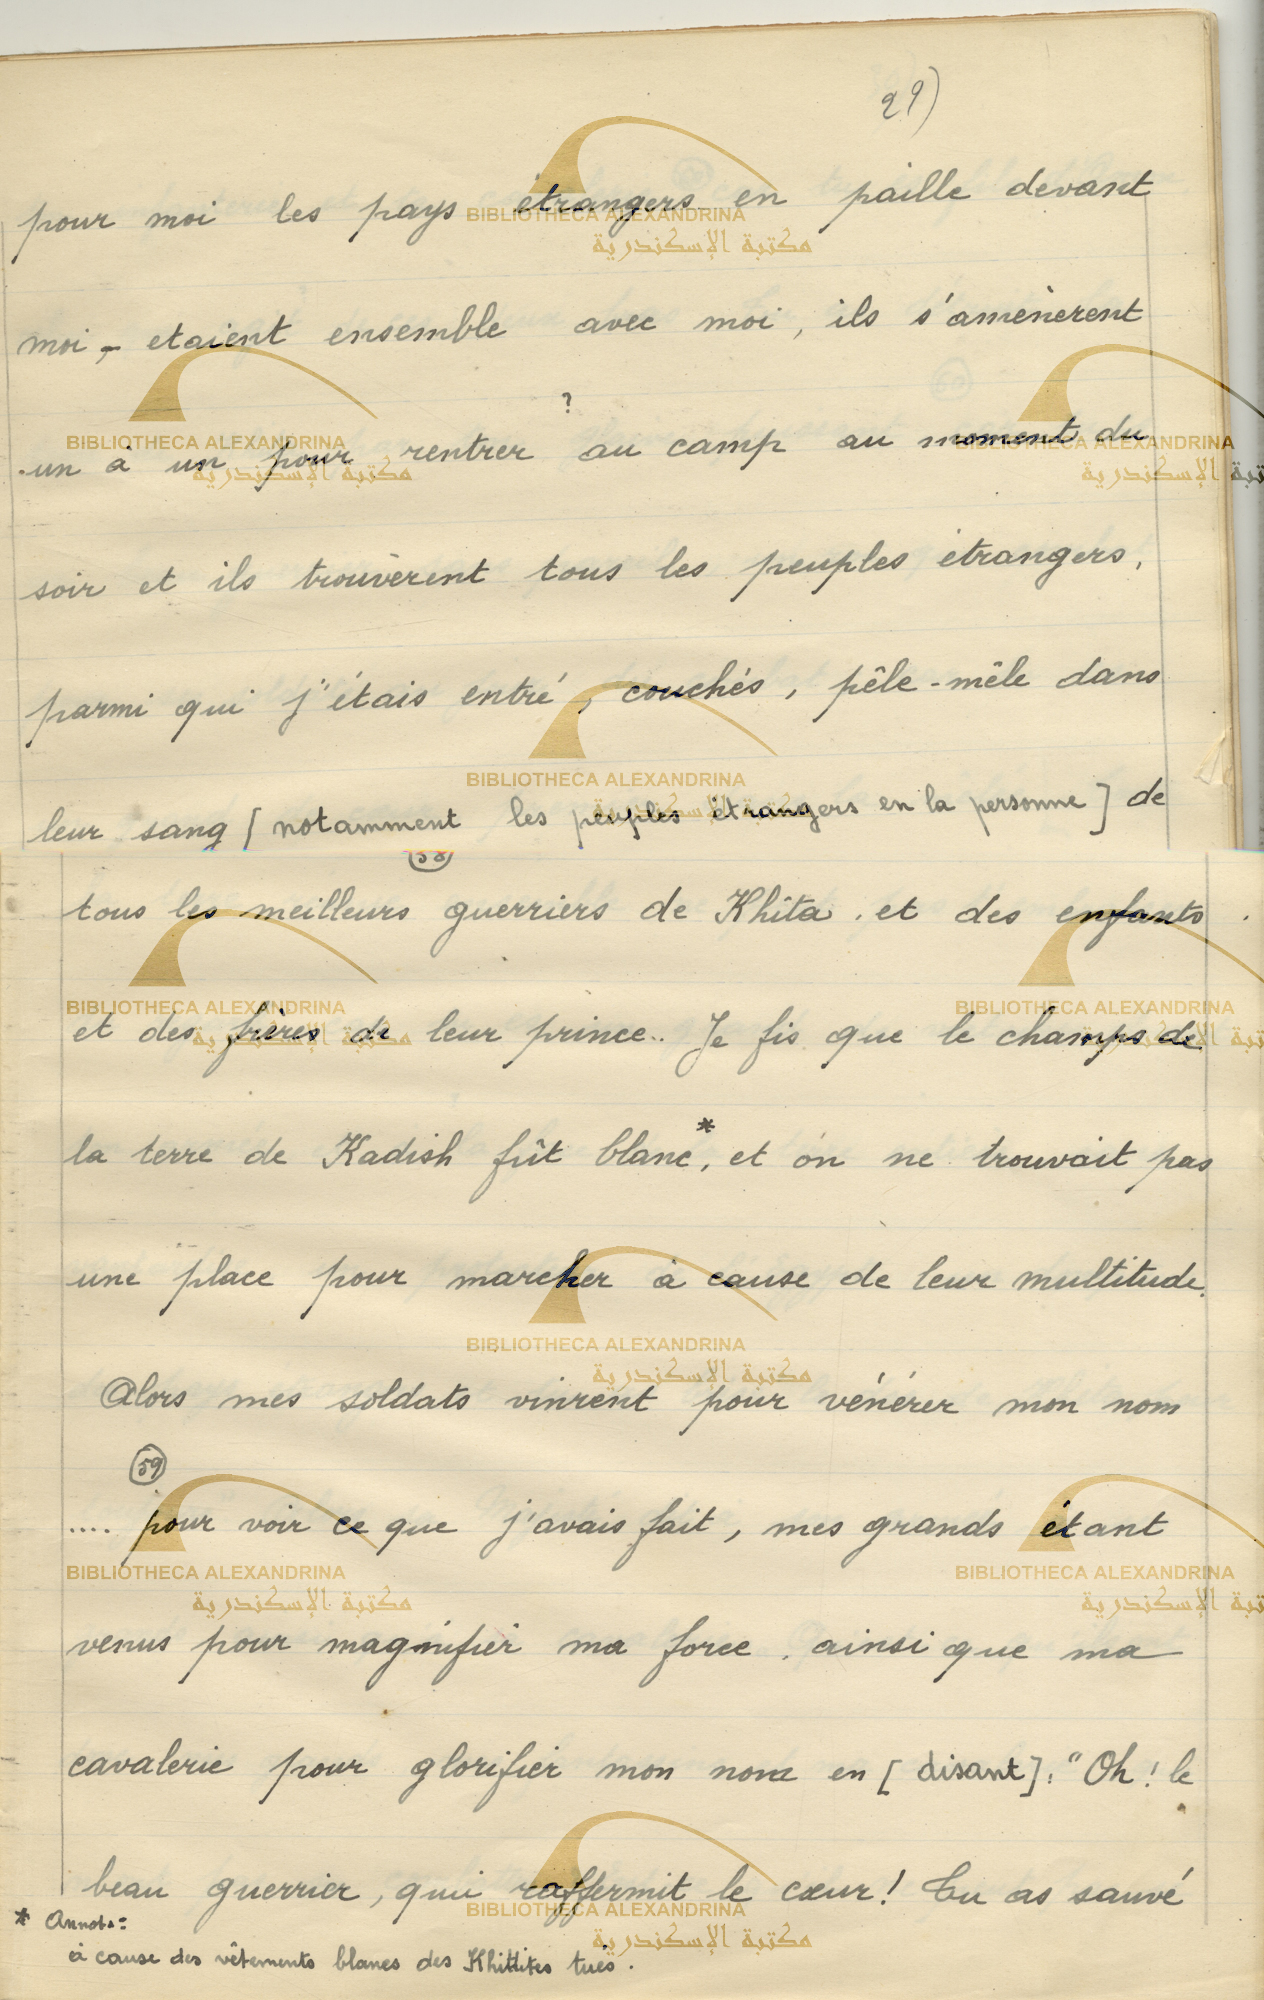 29)
pour moi les pays étrangers en paille devant
moi, - etaient ensemble avec moi, ils s'amenèrent
?
un à un pour rentrer au camp au moment du
soir et ils trouvèrent tous les peuples étrangers,
parmi qui j'étais entré, couchés, pêle-mêle dans
leur sang [notamment les peuples étrangers en la personne] de
58
tous les meilleurs guerriers de Khita. et des enfants
et des frères de leur prince.. Je fis que le champs de
la terre de Kadish fût blanc*, et on ne trouvait pas
une place pour marcher à cause de leur multitude.
Alors mes soldats vinrent pour vénérer mon nom
59
.... pour voir ce que j'avais fait, mes grands étant
venus pour magnifier ma force. ainsi que ma
cavalerie pour glorifier mon nom en [disant]: "Oh! le
beau guerrier, qui raffermit le cœur! Tu as sauvé
* Annot.:
à cause des vêtements blancs des Khittites tués.
BIBLIOTHECA ALEXANDRINA
مكتبة الإسكندرية